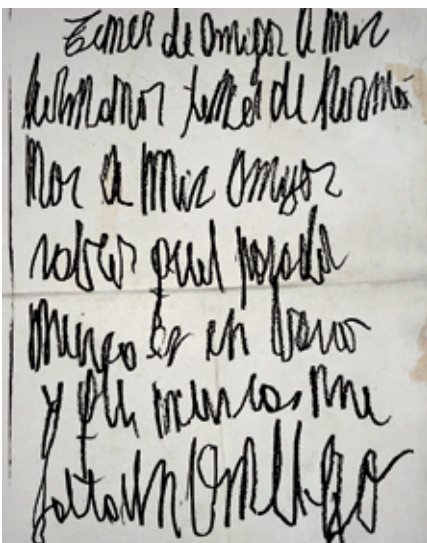 Tener de amigos a mis
hermanos tener de herma
nos a mis amigos
saber que el pasado
nunca es en vano
y que nunca me
falta un amigo